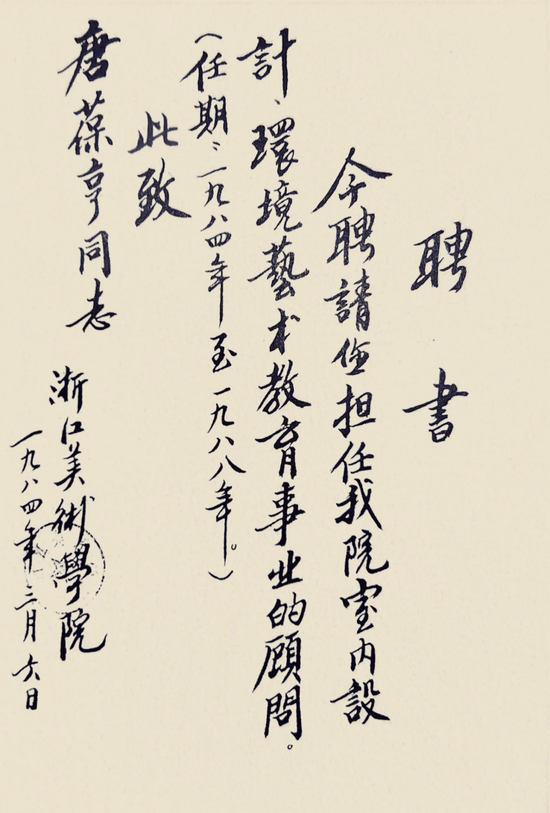 聘書
今聘請您担任我院室内設
計、環境藝术教育事业的顧問。
（任期：一九八四年至一九八八年。）
此致
唐葆亨同志
浙江美術學院
一九八四年三月六日